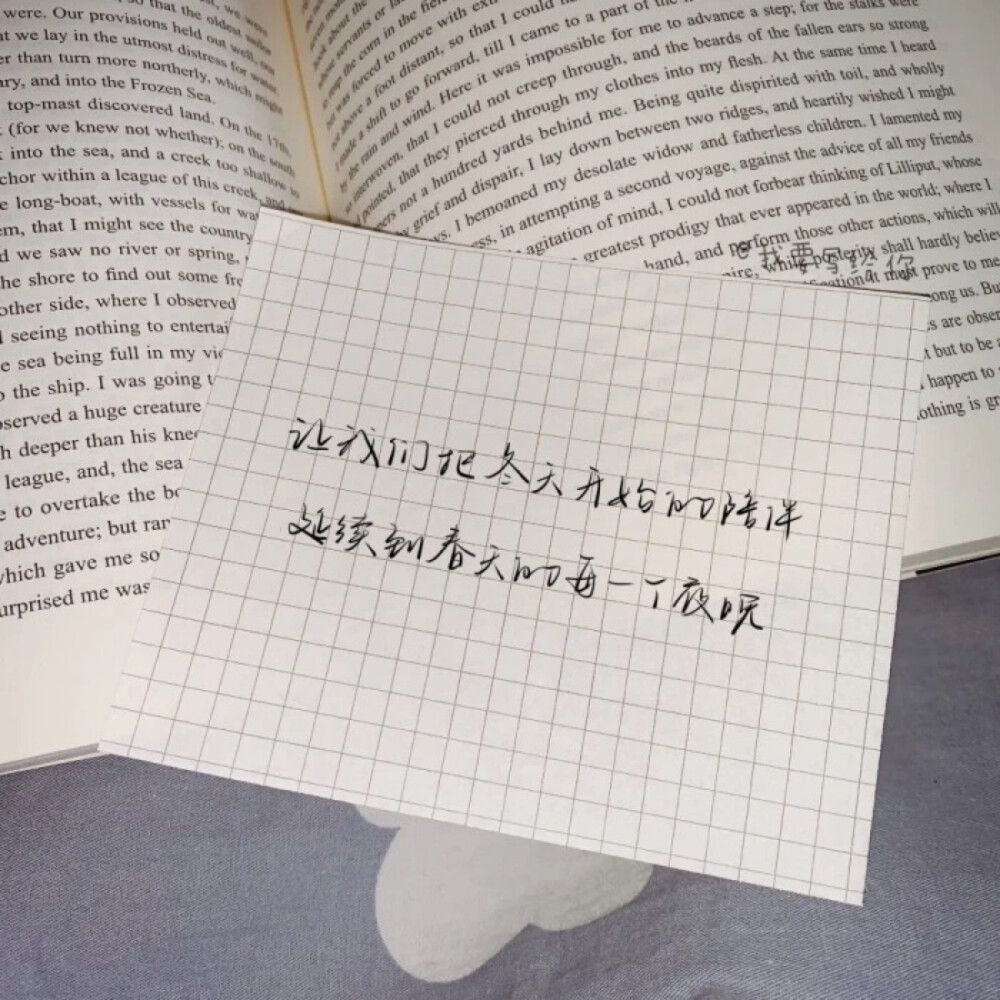 , so that the oldest sailor
were. Our provisions held out well, our
t we lay in the utmost distress for water
er than turn more northerly, which might
ry, and into the Frozen Sea.
top-mast discovered land. On the 17th,
(for we knew not whether); on the south
into the sea, and a creek too shallow to
chor within a league of this creek, and
e long-boat, with vessels for wa
em, that I might see the country
d we saw no river or spring,
he shore to find out some fre
other side, where I observed
seeing nothing to entertai
e sea being full in my vi
o the ship. I was going t
bserved a huge creature
h deeper than his kne
league, and, the sea
e to overtake the bo
adventure; but ran
which gave me so
urprised me was
about servants or la
reap the corn in the fie
was forced to move with ext
not above a foot distant, so that I could ha
made a shift to go forward, till I came to a part of the
by the rain and wind. Here it was impossible for me to advance a step; for the stalks were
interwoven, that I could not creep through, and the beards of the fallen ears so strong
pointed, that they pierced through my clothes into my flesh. At the same time I heard
pers not a hundred yards behind me. Being quite dispirited with toil, and wholly
grief and dispair, I lay down between two ridges, and heartily wished I might
ys. I bemoaned my desolate widow and fatherless children. I lamented my
ss, in attempting a second voyage, against the advice of all my friends
agitation of mind, I could not forbear thinking of Lilliput, whose
greatest prodigy that ever appeared in the world; where I
hand, and perform those other actions, which will
ire, while posterity shall hardly believ
ification it must prove to me
ong us. But
s are obser
t but to be a
happen to
othing is gr
@我要写给你
让我们把冬天开始的陪伴
延续到春天的每一个夜晚